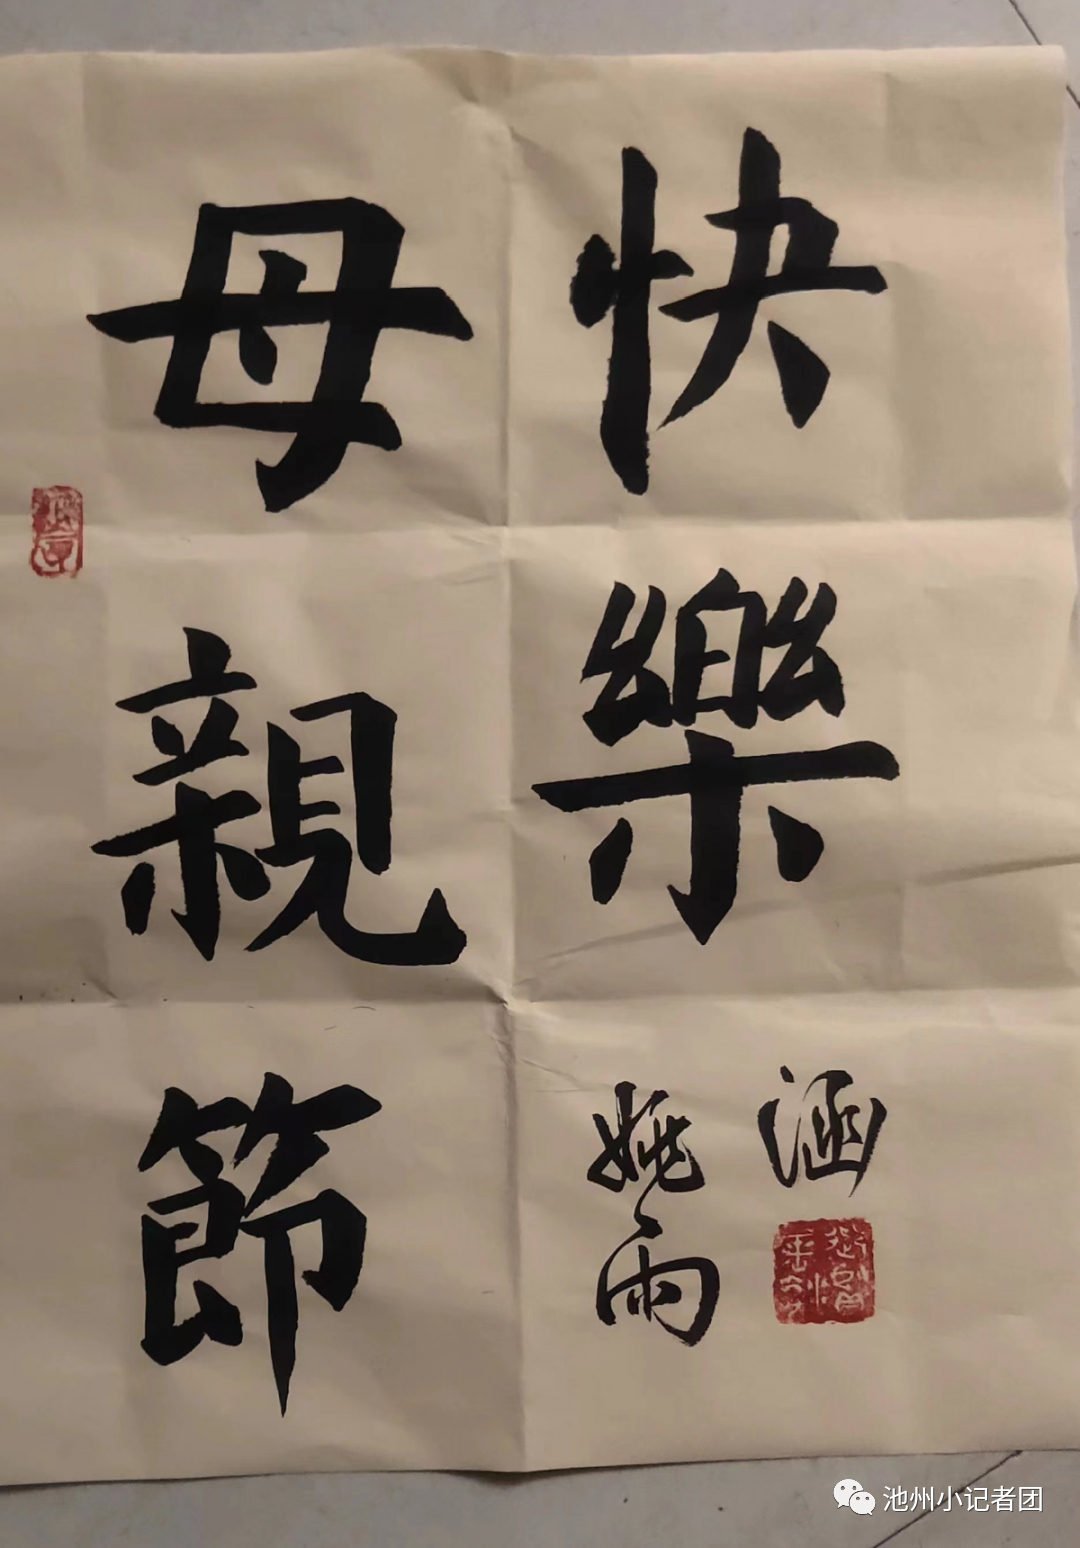 母親節
快樂
姚雨
涵
池州小记者团